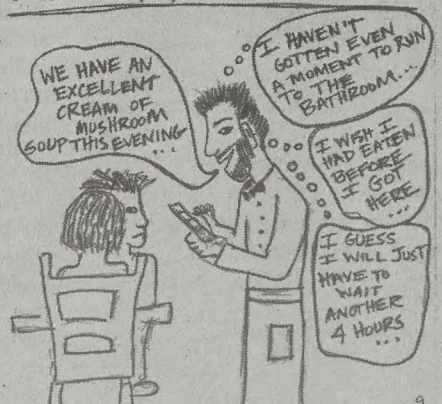 WE HAVE AN
EXCELLENT
CREAM OF
MUSHROOM
SOUP THIS EVENING
...
I HAVEN'T
GOTTEN EVEN
A MOMENT TO RUN
TO THE
BATHROOM...
I WISH I
HAD EATEN
BEFORE
I GOT
HERE
...
I GUESS
I WILL JUST
HAVE TO
WAIT
ANOTHER
4 HOURS
...
9